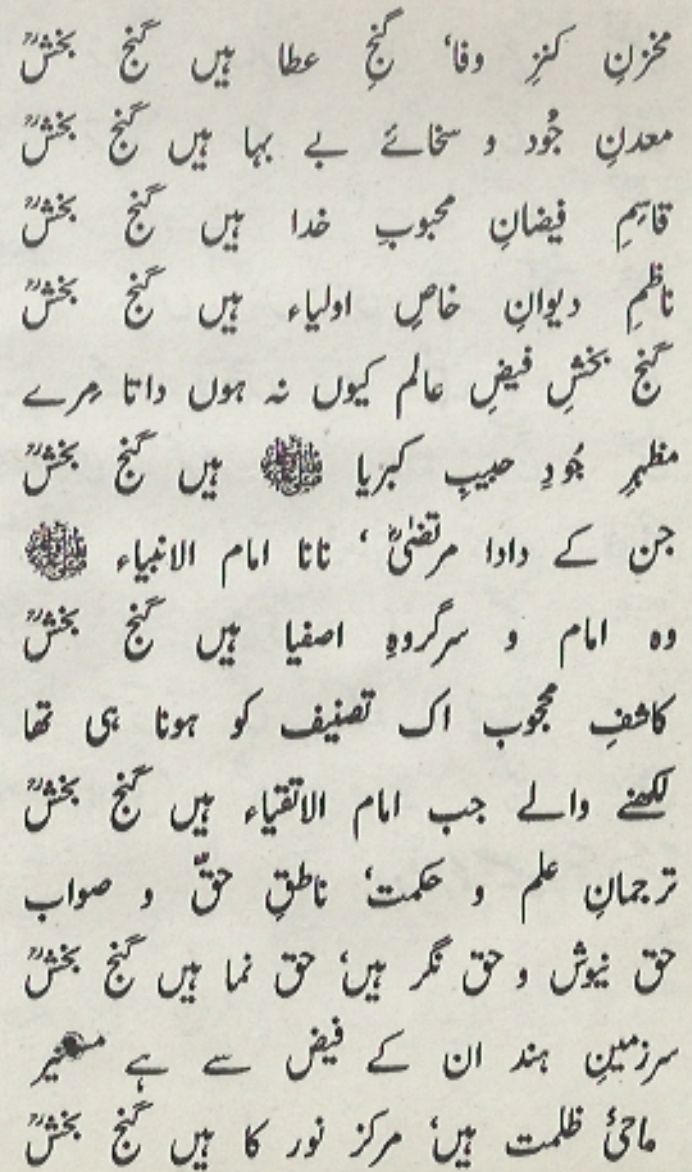 مخزنِ کنزِ وفا، گنجِ عطا ہیں گنج بخشؒ
معدنِ جُود و سخائے بے بہا ہیں گنج بخشؒ
قاسِمِ فیضانِ محبوبِ خدا ہیں گنج بخشؒ
ناظمِ دیوانِ خاصِ اولیاء ہیں گنج بخشؒ
گنج بخشِ فیضِ عالم کیوں نہ ہوں داتا مِرے
مظہرِ جُودِ حبیبِ کبریا ﷺ ہیں گنج بخشؒ
جن کے دادا مرتضیٰؓ ، نانا امام الانبیاء ﷺ
وہ امام و سرگروہِ اصفیا ہیں گنج بخشؒ
کاشفِ محجوب اک تصنیف کو ہونا ہی تھا
لکھنے والے جب امام الاتقیاء ہیں گنج بخشؒ
ترجمانِ علم و حکمت، ناطقِ حقّ و صواب
حق نیوش و حق نگر ہیں، حق نما ہیں گنج بخشؒ
سرزمینِ ہند ان کے فیض سے ہے
ماحیٔ ظلمت ہیں، مرکز نور کا ہیں گنج بخشؒ